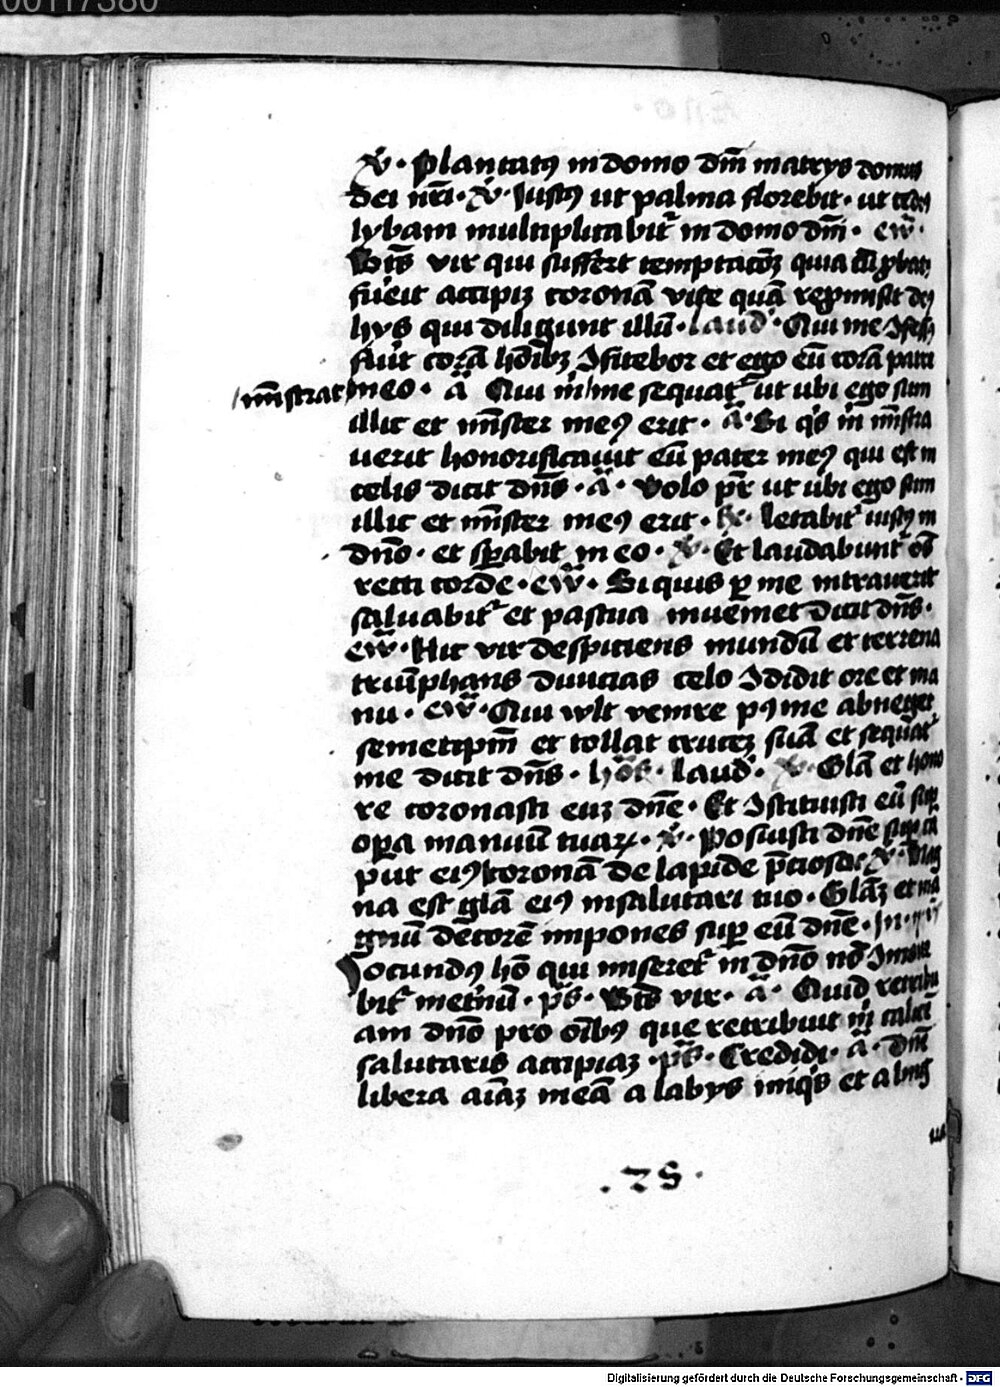 00117380
v̇ · plantatꝰ in domo dn̄i in atrys domus
dei nr̄i · v̇ · Justꝰ ut palma florebit · ut
lybani multiplicabit᷑ in domo dn̄i · ew̄ ·
Bt̄s vir qui suffert temptatōꝫ quia cū ꝓbatꝰ
fueit accipiꝫ coronā vite quā repmisit deꝰ
hys qui diligunt illū · laud᷑ · Qui me
fuit corā hōibꝫ ꝯfitebor et ego eū corā patri
ministrat
meo · ā Qui m̄ me sequat᷑ ut ubi ego sum
illic et mīster meꝰ erit · ā · Si q̇s m̄ mīstra
uerit honorificauit eū pater meꝰ qui est in
celis dicit dn̄s · ā · Volo pr̄ ut ubi ego sum
illic et mīster meꝰ erit · letabit᷑ iustꝰ in
dn̄o · et sꝑabit in eo · v̇ · Et laudabunt᷑ oēs
recti corde · ew̄ · Si quis ꝑ me intrauerit
saluabit᷑ et pascua inueniet dicit dn̄s ·
ew̄ · Hic vir despiciens mundū et terrena
triūphans diuicias celo ꝯdidit ore et ma
nu · ew̄ · Qui wlt venire pꝰ me abneget
semetipm̄ et tollat cruceꝫ suā et sequat᷑
me dicit dn̄s · hōs · laud᷑ · v̇ · Glā et hono
re coronasti euꝫ dn̄e · Et ꝯstituisti eū suꝑ
oꝑa manuū tuaꝝ · v̇ · Posuisti dn̄e suꝑ ca
put eiꝰ coronā de lapide p̄cioso · v̇ · Mag
na est glā eiꝰ in salutari tuo · Glāꝫ et ma
gnū decorē impones suꝑ eū dn̄e · In
Jocundꝰ hō qui miseret᷑
bit᷑ · ps̄ · Bt̄s vir · ā · Quid retribu
am dn̄o pro oībꝰ que retribuit m̄ calicē
salutaris accipiaꝫ · ps̄ · Credidi · ā · Dn̄e
libera aīaꝫ meā a labys iniq̇s et a ling
ua
· 28 ·
Digitalisierung gefördert durch die Deutsche Forschungsgemeinschaft - DFG